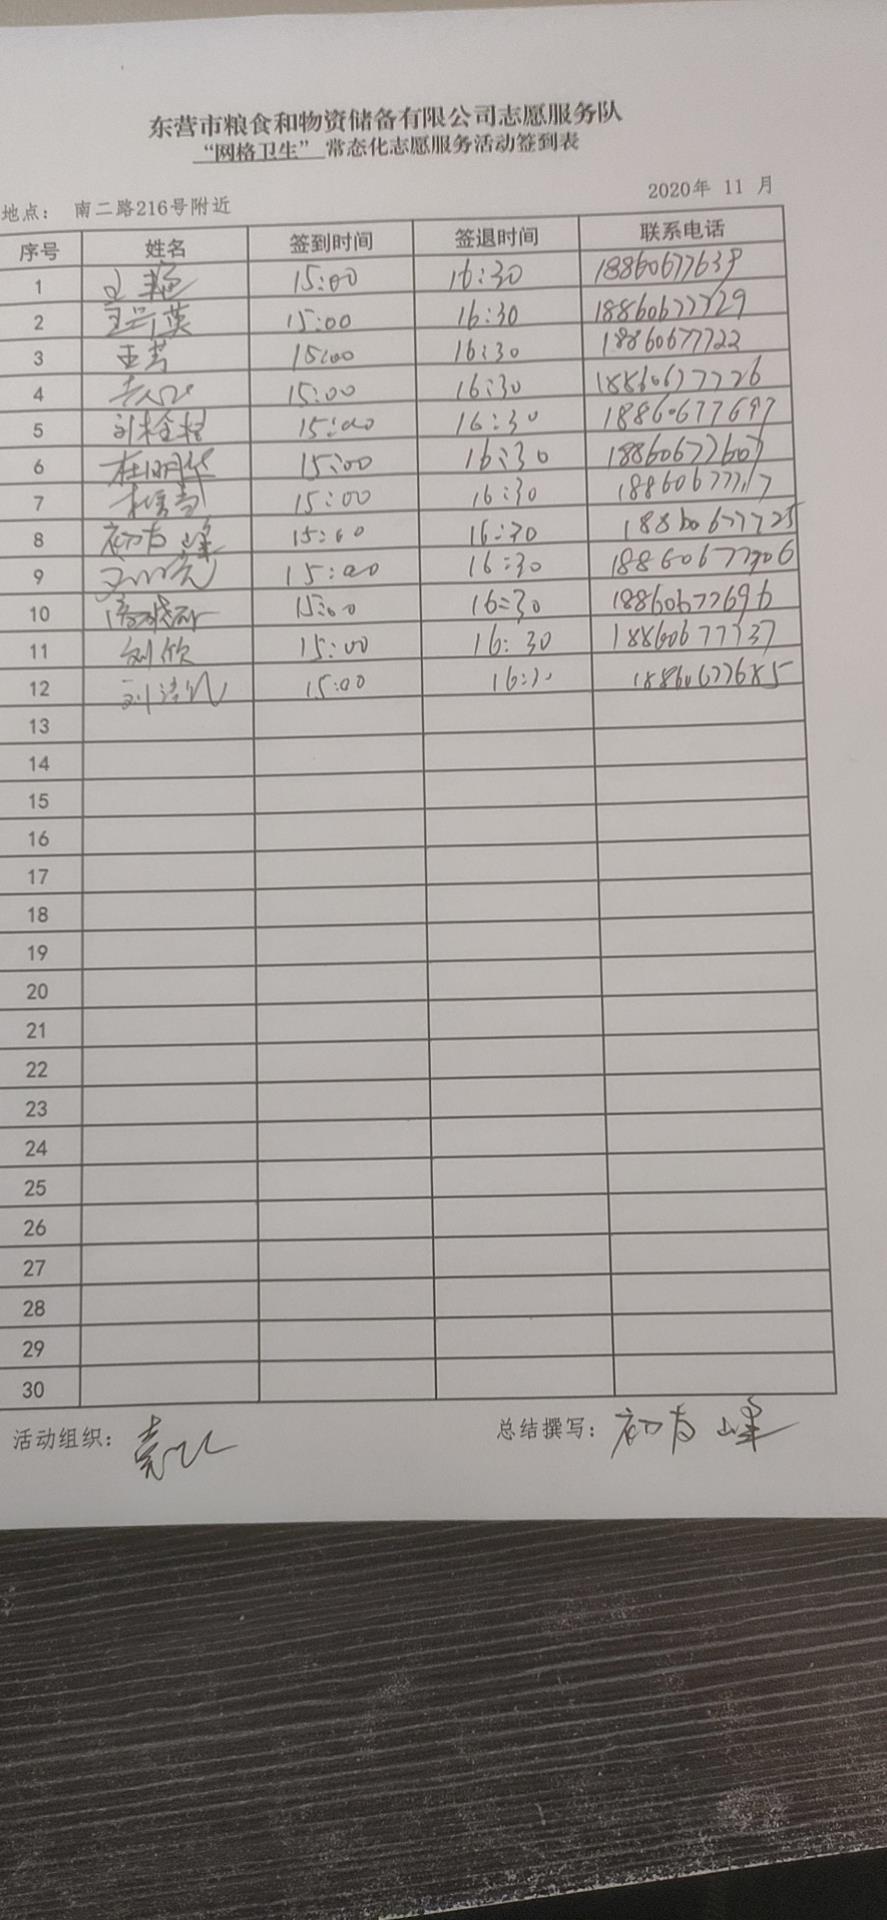 东营市粮食和物资储备有限公司志愿服务队
“网格卫生”常态化志愿服务活动签到表
地点： 南二路216号附近 2020年 11 月
序号 姓名 签到时间 签退时间 联系电话
1 15:00 16:30 18860677639
2 15:00 16:30 18860677729
3 15:00 16:30 18860677722
4 15:00 16:30 18860677726
5 15:00 16:30 18860677697
6 杜明华 15:00 16:30
7 15:00 16:30
8 初有峰 15:00 16:30 18860677725
9 15:00 16:30
10 15:00 16:30 18860677696
11 刘欣 15:00 16:30 18860677737
12 15:00 16:30 18860677685
13
14
15
16
17
18
19
20
21
22
23
24
25
26
27
28
29
30
活动组织： 总结撰写：初有峰